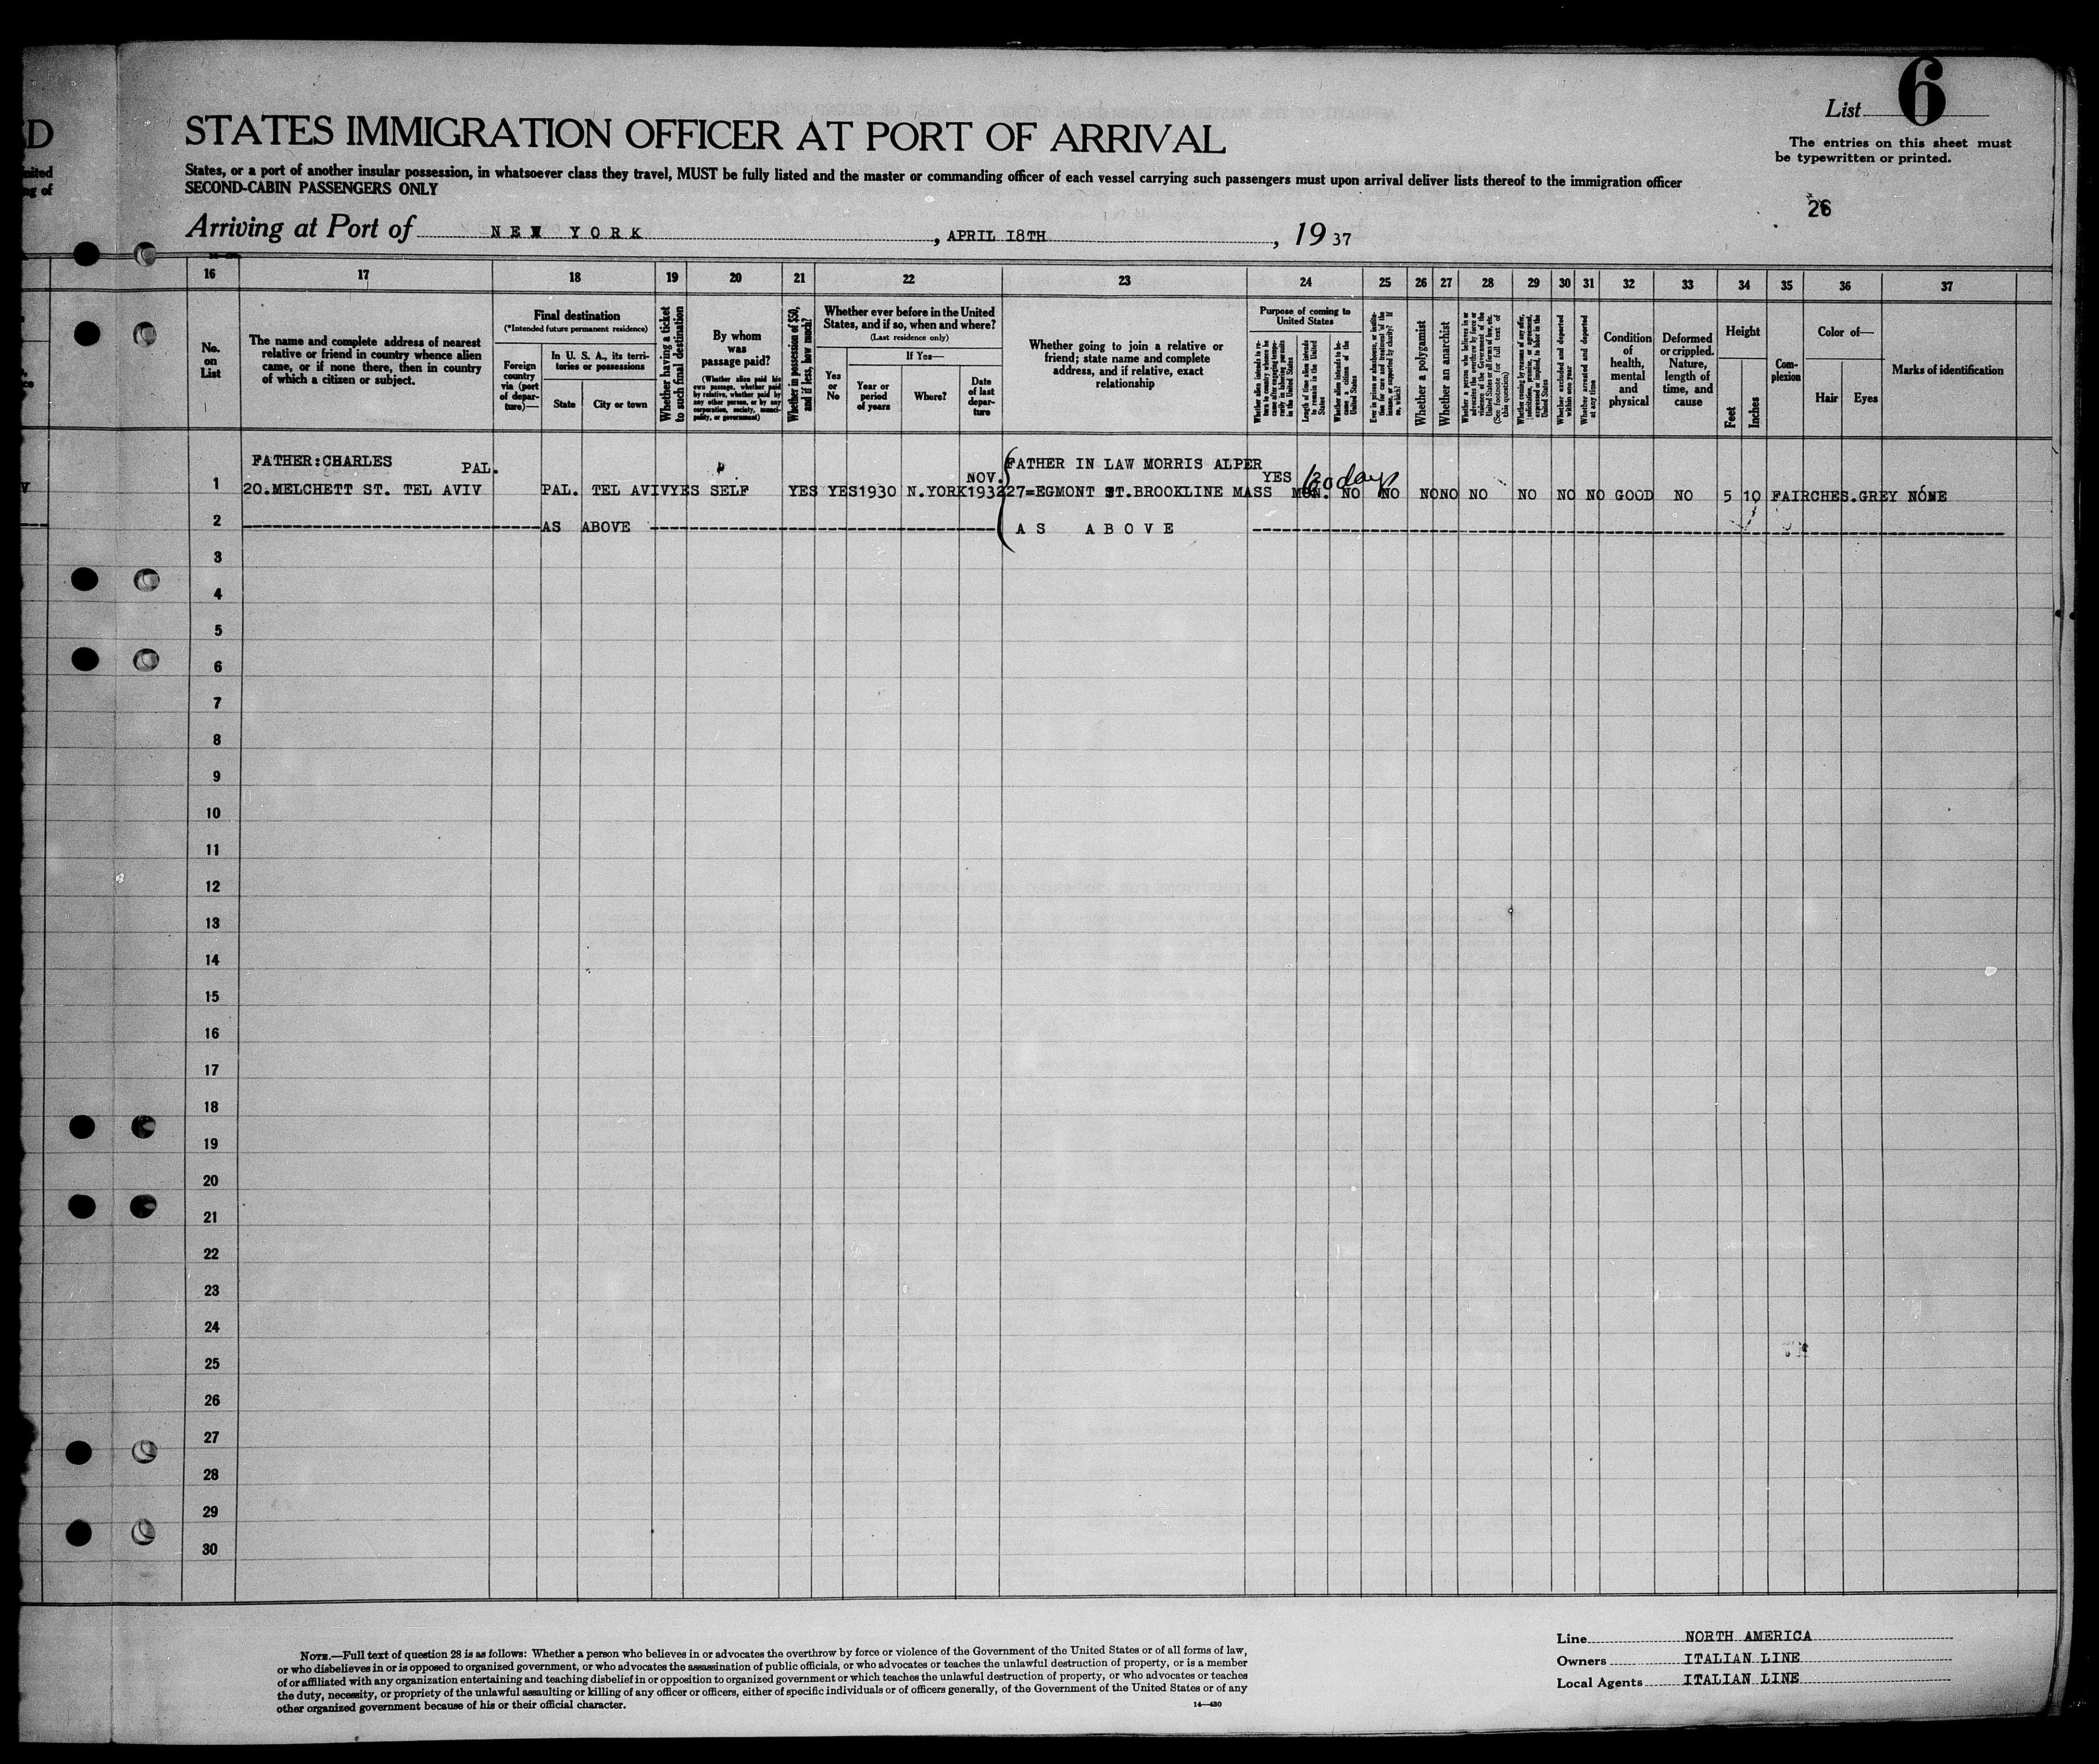 D
List 6
The entries on this sheet must
be typewritten or printed.
STATES IMMIGRATION OFFICER AT PORT OF ARRIVAL
States, or a port of another insular possession, in whatsoever class they travel, MUST be fully listed and the master or commanding officer of each vessel carrying such passengers must upon arrival deliver lists thereof to the immigration officer
SECOND-CABIN PASSENGERS ONLY
26
Arriving at Port of NEW YORK , APRIL 18TH , 19 37
16 17 18 19 20 21 22 23 24 25 26 27 28 29 30 31 32 33 34 35 36 37
No.
on
List
The name and complete address of nearest
relative or friend in country whence alien
came, or if none there, then in country
of which a citizen or subject.
Final destination
(*Intended future permanent residence)
Foreign
country
via (port
of depar-
ture)—
In U. S. A., its terri-
tories or possessions
State
City or town
Whether having a ticket
to such final destination
By whom
was
passage paid?
(Whether alien paid his
own passage, whether paid
by relative, whether paid by
any other person, or by any
corporation, society, munici-
pality, or government)
Whether in possession of $50,
and if less, how much?
Whether ever before in the United
States, and if so, when and where?
(Last residence only)
Yes
or
No
If Yes—
Year or
period
of years
Where?
Date
of last
depar-
ture
Whether going to join a relative or
friend; state name and complete
address, and if relative, exact
relationship
Purpose of coming to
United States
Whether alien intends to re-
turn to country whence he
came after engaging tempo-
rarily in laboring pursuits
in the United States
Length of time alien intends
to remain in the United
States
Whether alien intends to be-
come a citizen of the
United States
Ever in prison or almshouse, or institu-
tion for care and treatment of the
insane, or supported by charity? If
so, which?
Whether a polygamist
Whether an anarchist
Whether a person who believes in or
advocates the overthrow by force or
violence of the Government of the
United States or all forms of law, etc.
(See footnote for full text of
this question)
Whether coming by reason of any offer,
solicitation, promise, or agreement,
expressed or implied, to labor in the
United States
Whether excluded and deported
within one year
Whether arrested and deported
at any time
Condition
of
health,
mental
and
physical
Deformed
or crippled.
Nature,
length of
time, and
cause
Height
Feet
Inches
Com-
plexion
Color of—
Hair
Eyes
Marks of identification
FATHER:CHARLES PAL. NOV. FATHER IN LAW MORRIS ALPER YES 60 days
1 20.MELCHETT ST. TEL AVIV PAL. TEL AVIV YES SELF YES YES 1930 N.YORK 1932 27=EGMONT ST.BROOKLINE MASS MON. NO NO NO NO NO NO NO NO GOOD NO 5 10 FAIR CHES. GREY NONE
2 AS ABOVE AS ABOVE
3
4
5
6
7
8
9
10
11
12
13
14
15
16
17
18
19
20
21
22
23
24
25
26
27
28
29
30
NOTE.—Full text of question 28 is as follows: Whether a person who believes in or advocates the overthrow by force or violence of the Government of the United States or of all forms of law,
or who disbelieves in or is opposed to organized government, or who advocates the assassination of public officials, or who advocates or teaches the unlawful destruction of property, or is a member
of or affiliated with any organization entertaining and teaching disbelief in or opposition to organized government or which teaches the unlawful destruction of property, or who advocates or teaches
the duty, necessity, or propriety of the unlawful assaulting or killing of any officer or officers, either of specific individuals or of officers generally, of the Government of the United States or of any
other organized government because of his or their official character.
14—430
Line NORTH AMERICA
Owners ITALIAN LINE
Local Agents ITALIAN LINE